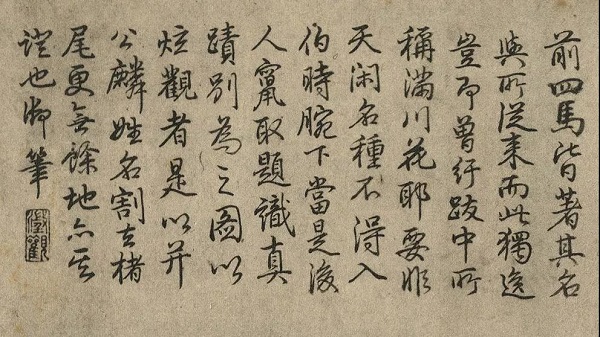 前四馬皆著其名
與所從来而此獨逸
豈即曾紆跋中所
稱滿川花耶要非
天闲名種不得入
伯時腕下當是後
人竄取題識真
蹟別為之圖以
炫觀者是以并
公麟姓名割去楮
尾更無餘地亦其
證也御筆